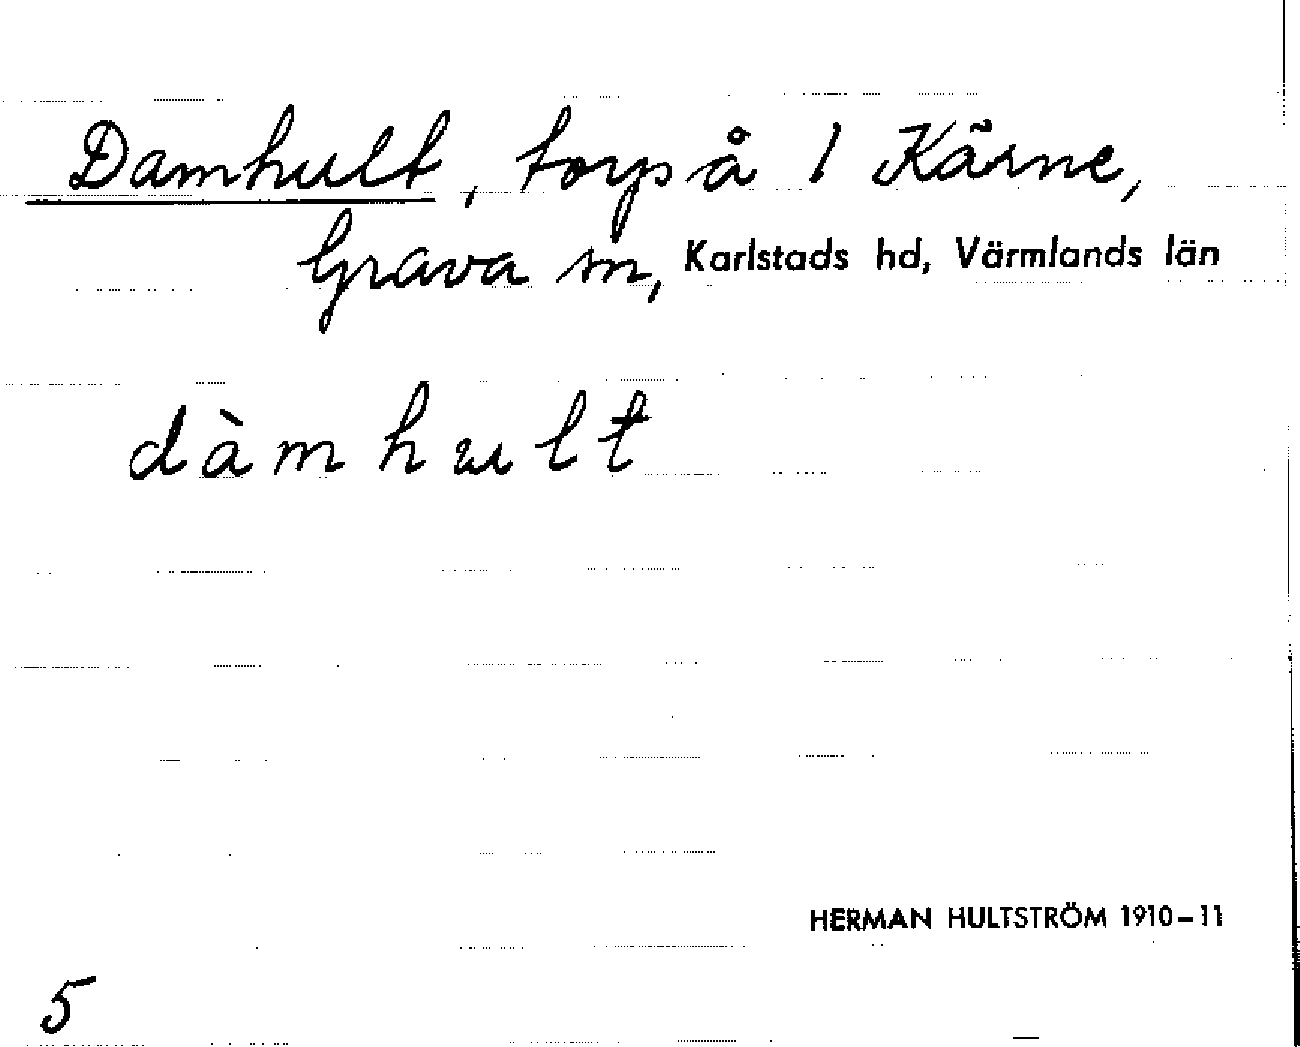 Damhult, torp å 1 Kärne,
Grava sn, Karlstads hd, Värmlands län
dàmhult
HERMAN HULTSTRÖM 1910-11
5